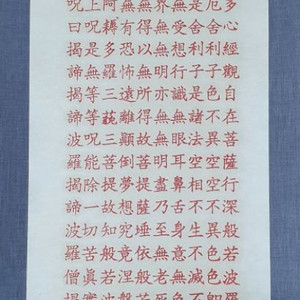 多心經觀自在菩薩行深般若波
厄舍利子色不異空空不異色色
是舍利子是諸法空相不生不滅
無受想行識無眼耳鼻舌身意無色
界無無明亦無無明盡乃至無老死
無得以無所得故菩提薩埵依般若
無有恐怖遠離顛倒夢想究竟涅般
阿耨多羅三藐三菩提故知般若波
上呪是無等等呪能除一切苦眞實
呪曰揭諦揭諦波羅揭諦波羅僧揭